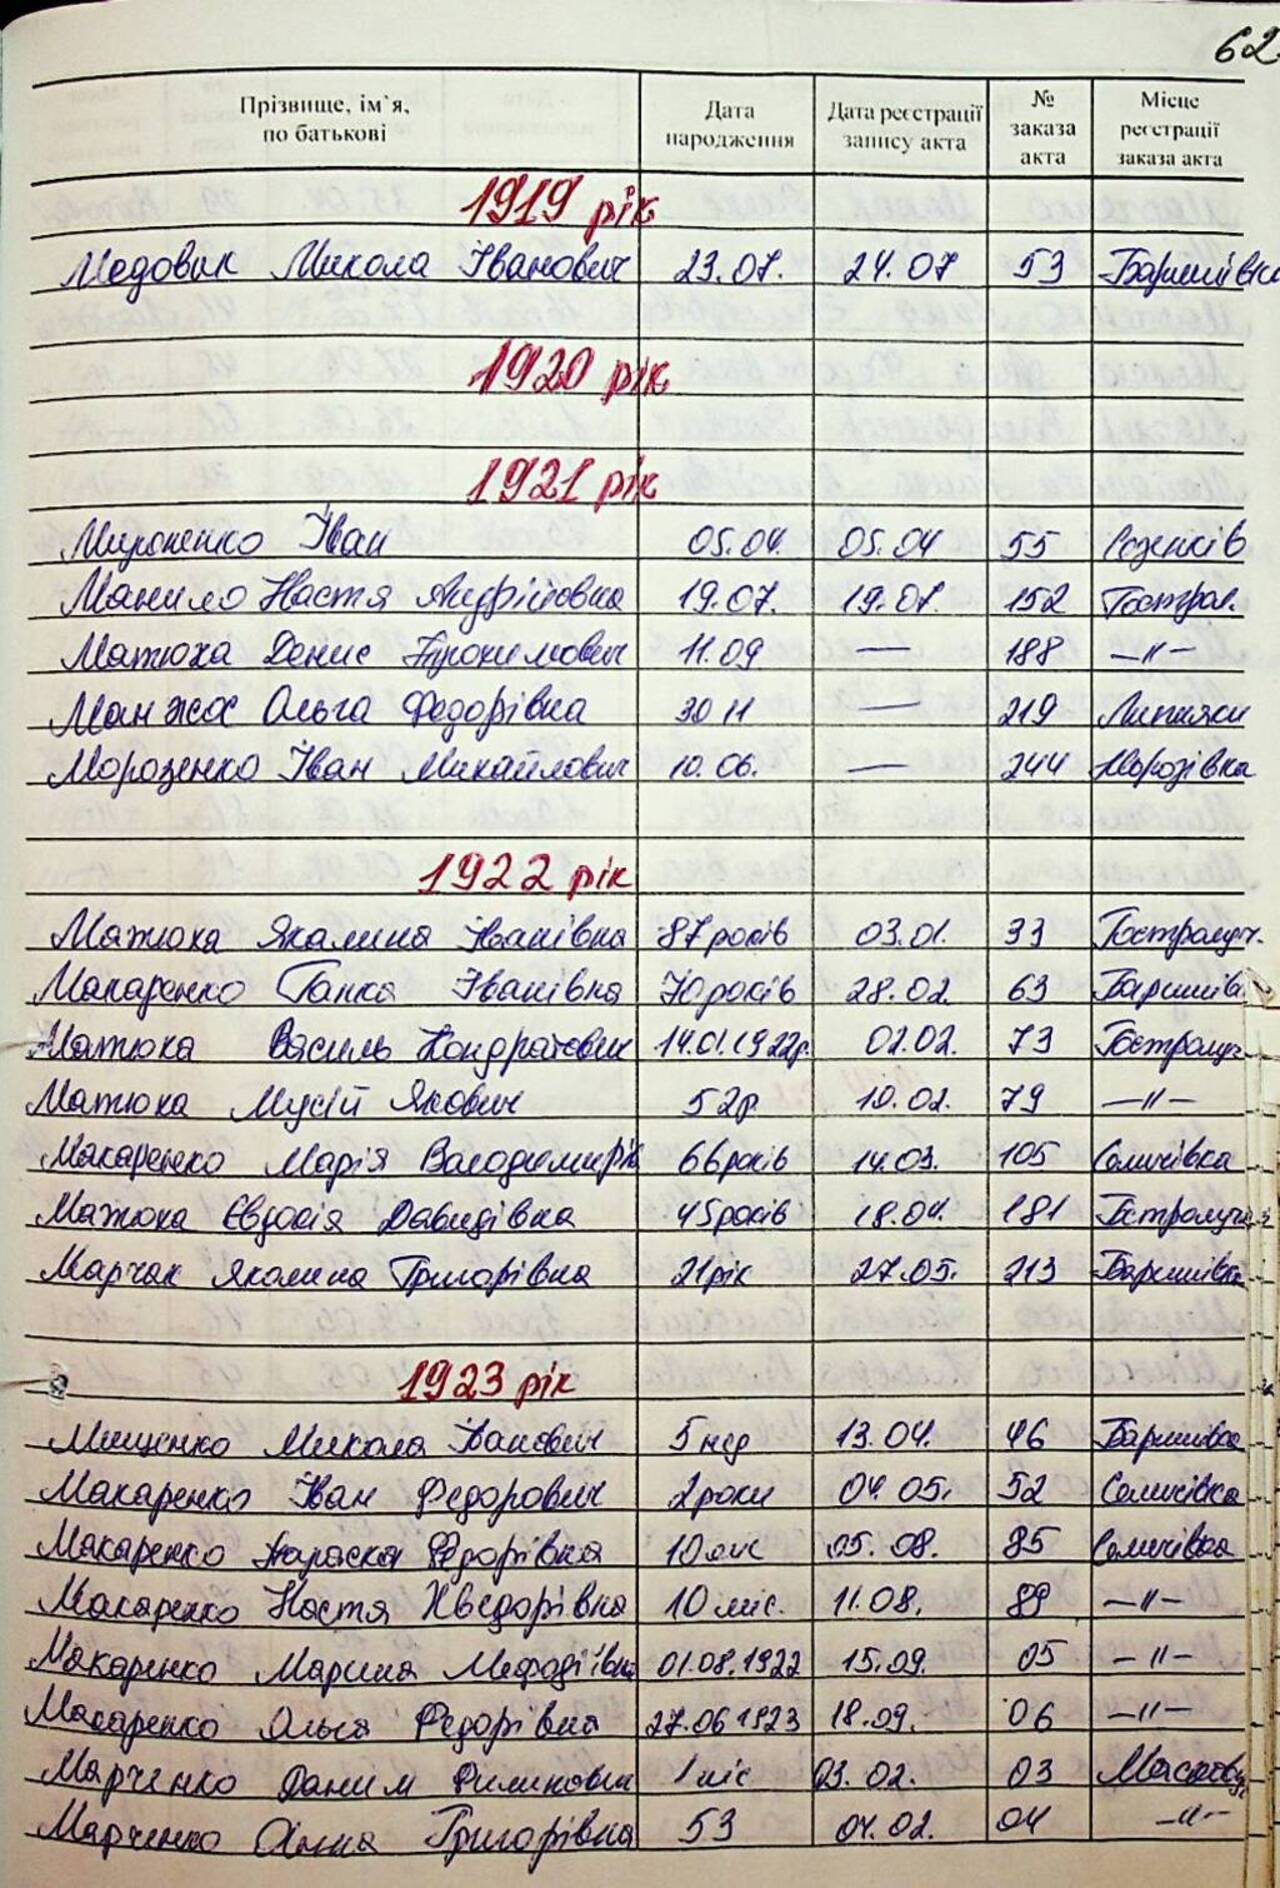 62
Прізвище, ім`я, по батькові Дата народження Дата реєстрації запису акта № заказа акта Місце реєстрації заказа акта
1919 рік
Медовик Микола Іванович 23.07. 24.07 53 Баришівка
1920 рік
1921 рік
Мироненко Іван 05.04. 05.04 55
Манило Настя Андріївна 19.07. 19.07. 152 Гострол.
Матюха Денис Прокимович 11.09 — 188 —〃—
Манжос Ольга Федорівна 30 11 — 219 Липняки
Морозенко Іван Михайлович 10.06. — 244 Морозівка
1922 рік
Матюха Якилина Іванівна 87 років 03.01. 33 Гостролуч.
Макаренко Ганка Іванівна 70 років 28.02. 63 Баришів.
Матюха Василь Кондратович 14.01.1922р. 02.02. 73 Гостролуч
Матюха Мусій Якович 52р. 10.02. 79 —〃—
Макаренко Марія Володимирів 66 років 14.03. 105 Селичівка
Матюха Євдокія Давидівна 45 років 18.04. 181 Гостролуч
Марчак Якилина Григорівна 21 рік 27.05. 213 Баришівка
1923 рік
Мищенко Микола Іванович 5 нед 13.04. 46 Баришівка
Макаренко Іван Федорович 2 роки 04.05. 52 Селичівка
Макаренко Параска Федорівна 10 міс 05.08. 85 Селичівка
Макаренко Настя Хведорівна 10 міс. 11.08. 89 —〃—
Макаренко Марина Мефодіївна 01.08.1922 15.09. 05 —〃—
Макаренко Ольга Федорівна 27.06 1923 18.09. 06 —〃—
Марченко Данил Филимович 1 міс 03.02. 03
Марченко Анна Григорівна 53 04.02. 04 —〃—